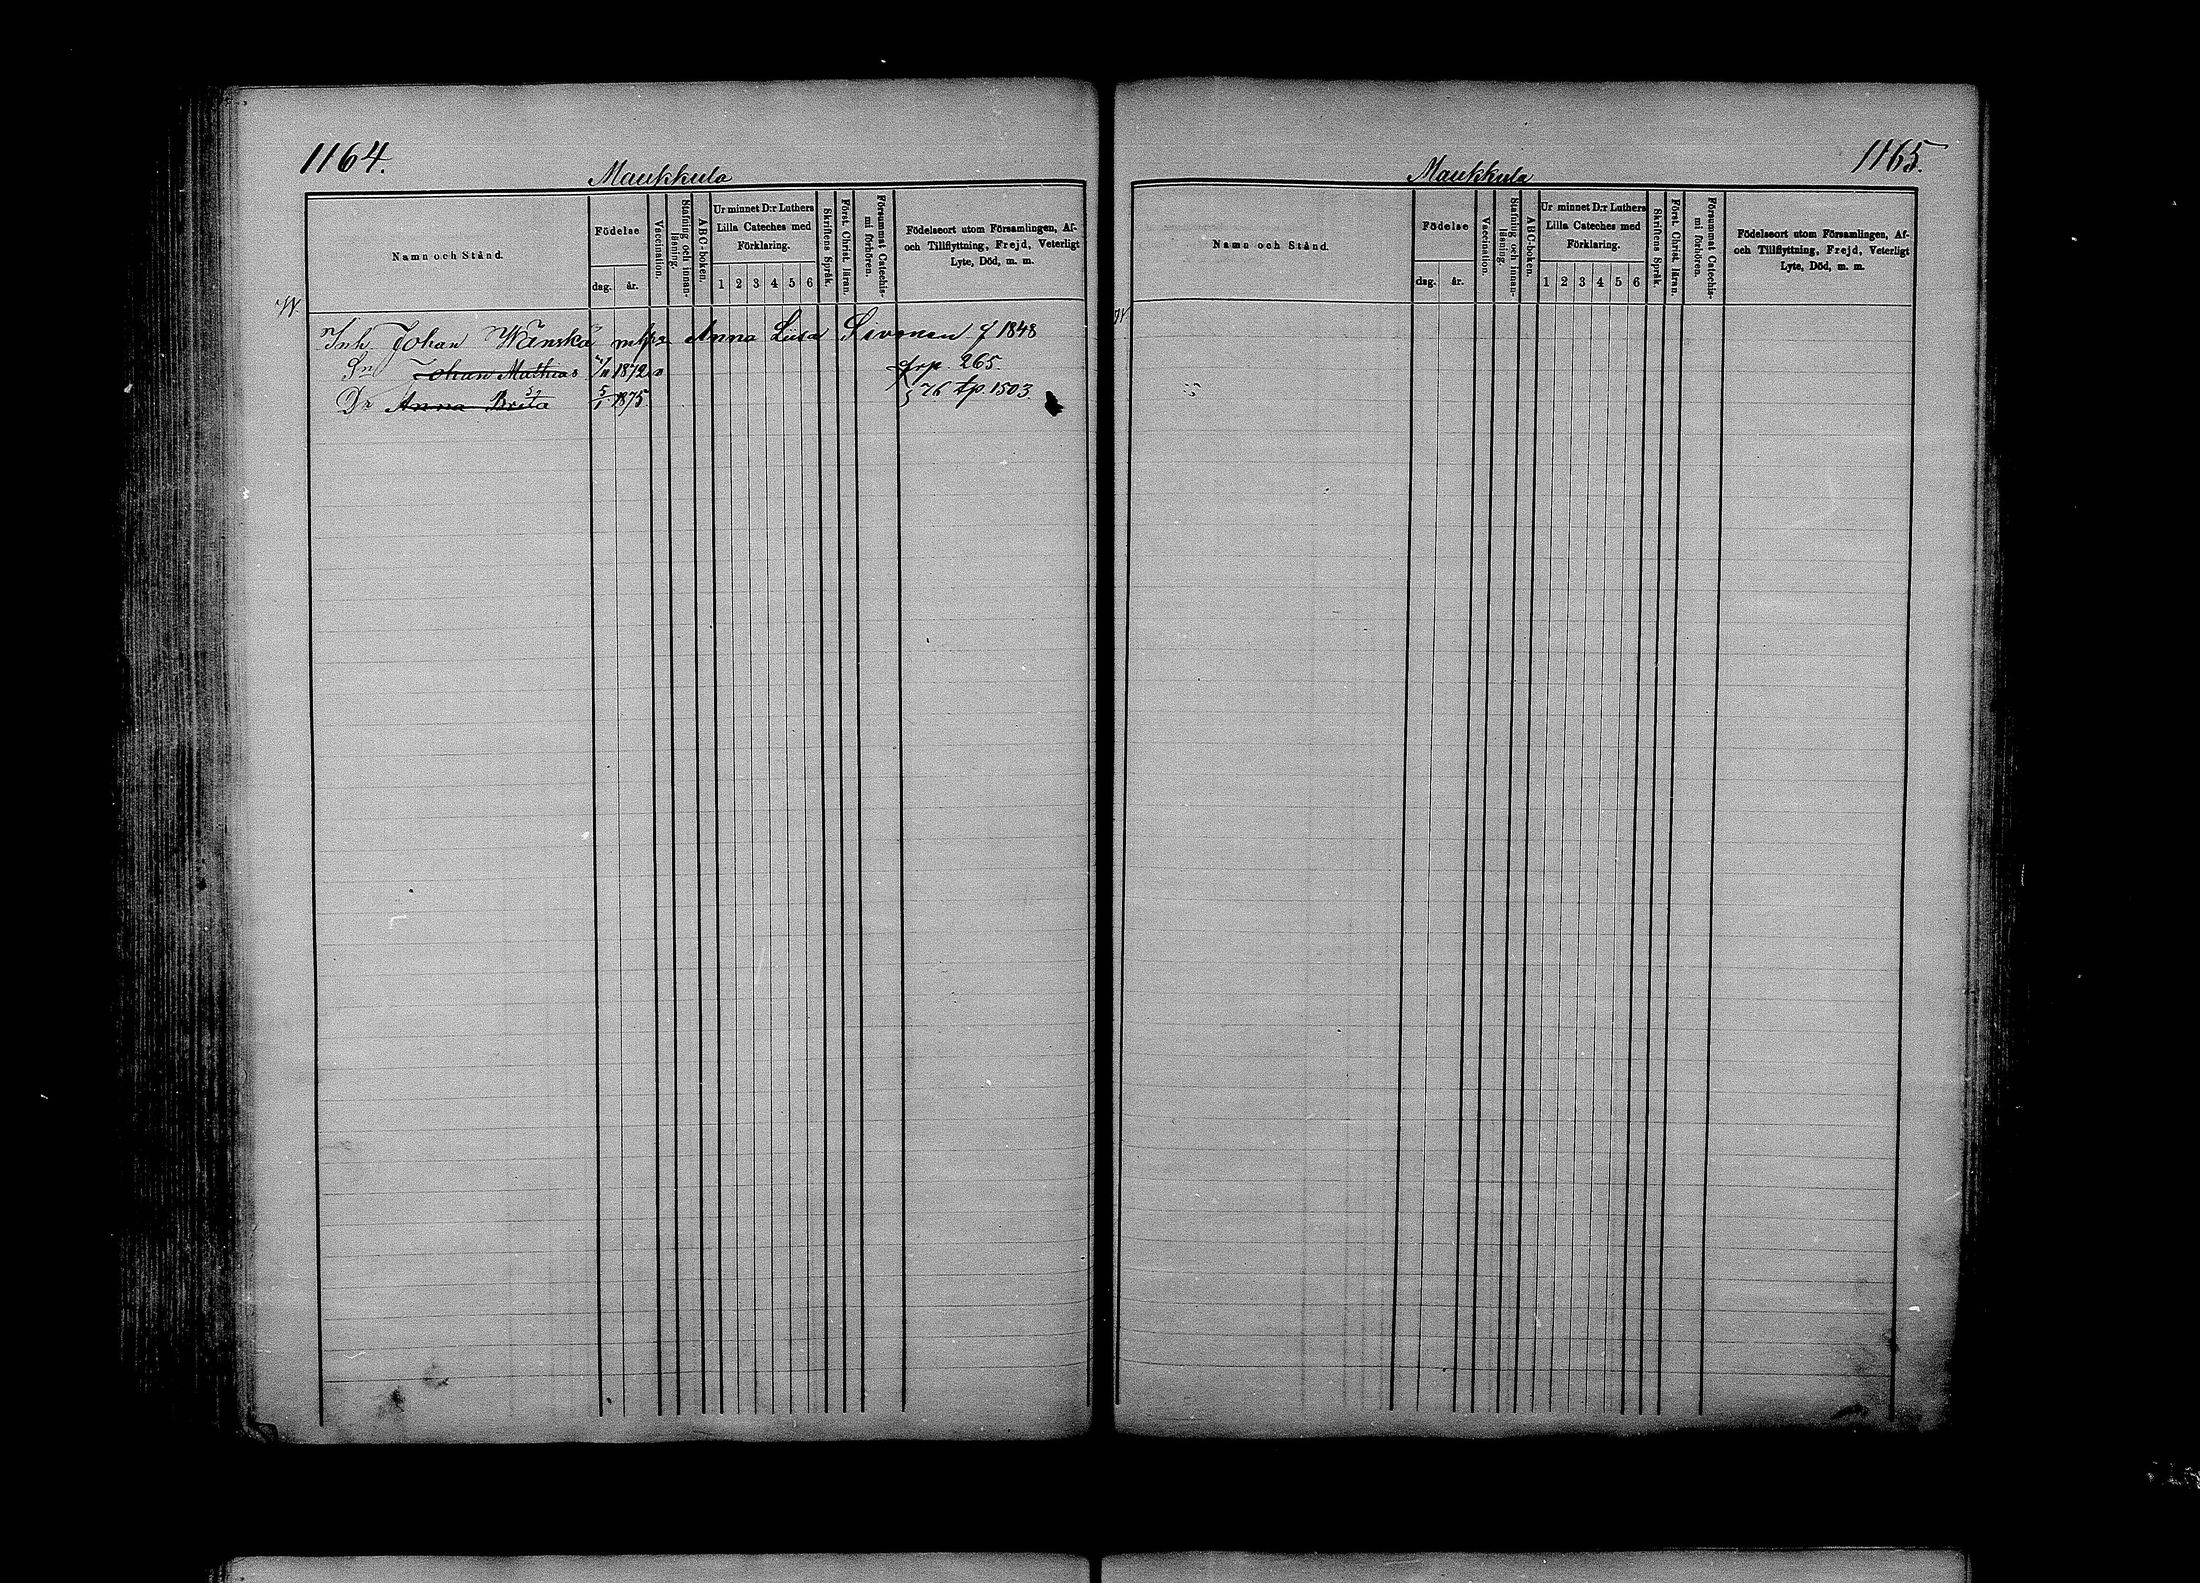 1164.
Maukkula
Namn och Stånd.
Födelse
dag.
år.
Vaccination.
Stafning och innan-
läsning.
ABC-boken.
Ur minnet D:r Luthers
Lilla Cateches med
Förklaring.
1 2 3 4 5 6
Skriftens Språk.
Först. Christ. läran.
Försummat Catechis-
mi förhören.
Födelseort utom Församlingen, Af-
och Tillflyttning, Frejd, Veterligt
Lyte, Död, m. m.
W.
Inh Johan Wänskä Anna Liisa Sivonen f 1848
Sn Johan Mathias 1872 frp. 265.
Dr Anna Brita 5/1 1875. 76 tp. 1503.
1165.
Maukkula
Namn och Stånd.
Födelse
dag.
år.
Vaccination.
Stafning och innan-
läsning.
ABC-boken.
Ur minnet D:r Luthers
Lilla Cateches med
Förklaring.
1 2 3 4 5 6
Skriftens Språk.
Först. Christ. läran.
Försummat Catechis-
mi förhören.
Födelseort utom Församlingen, Af-
och Tillflyttning, Frejd, Veterligt
Lyte, Död, m. m.
W